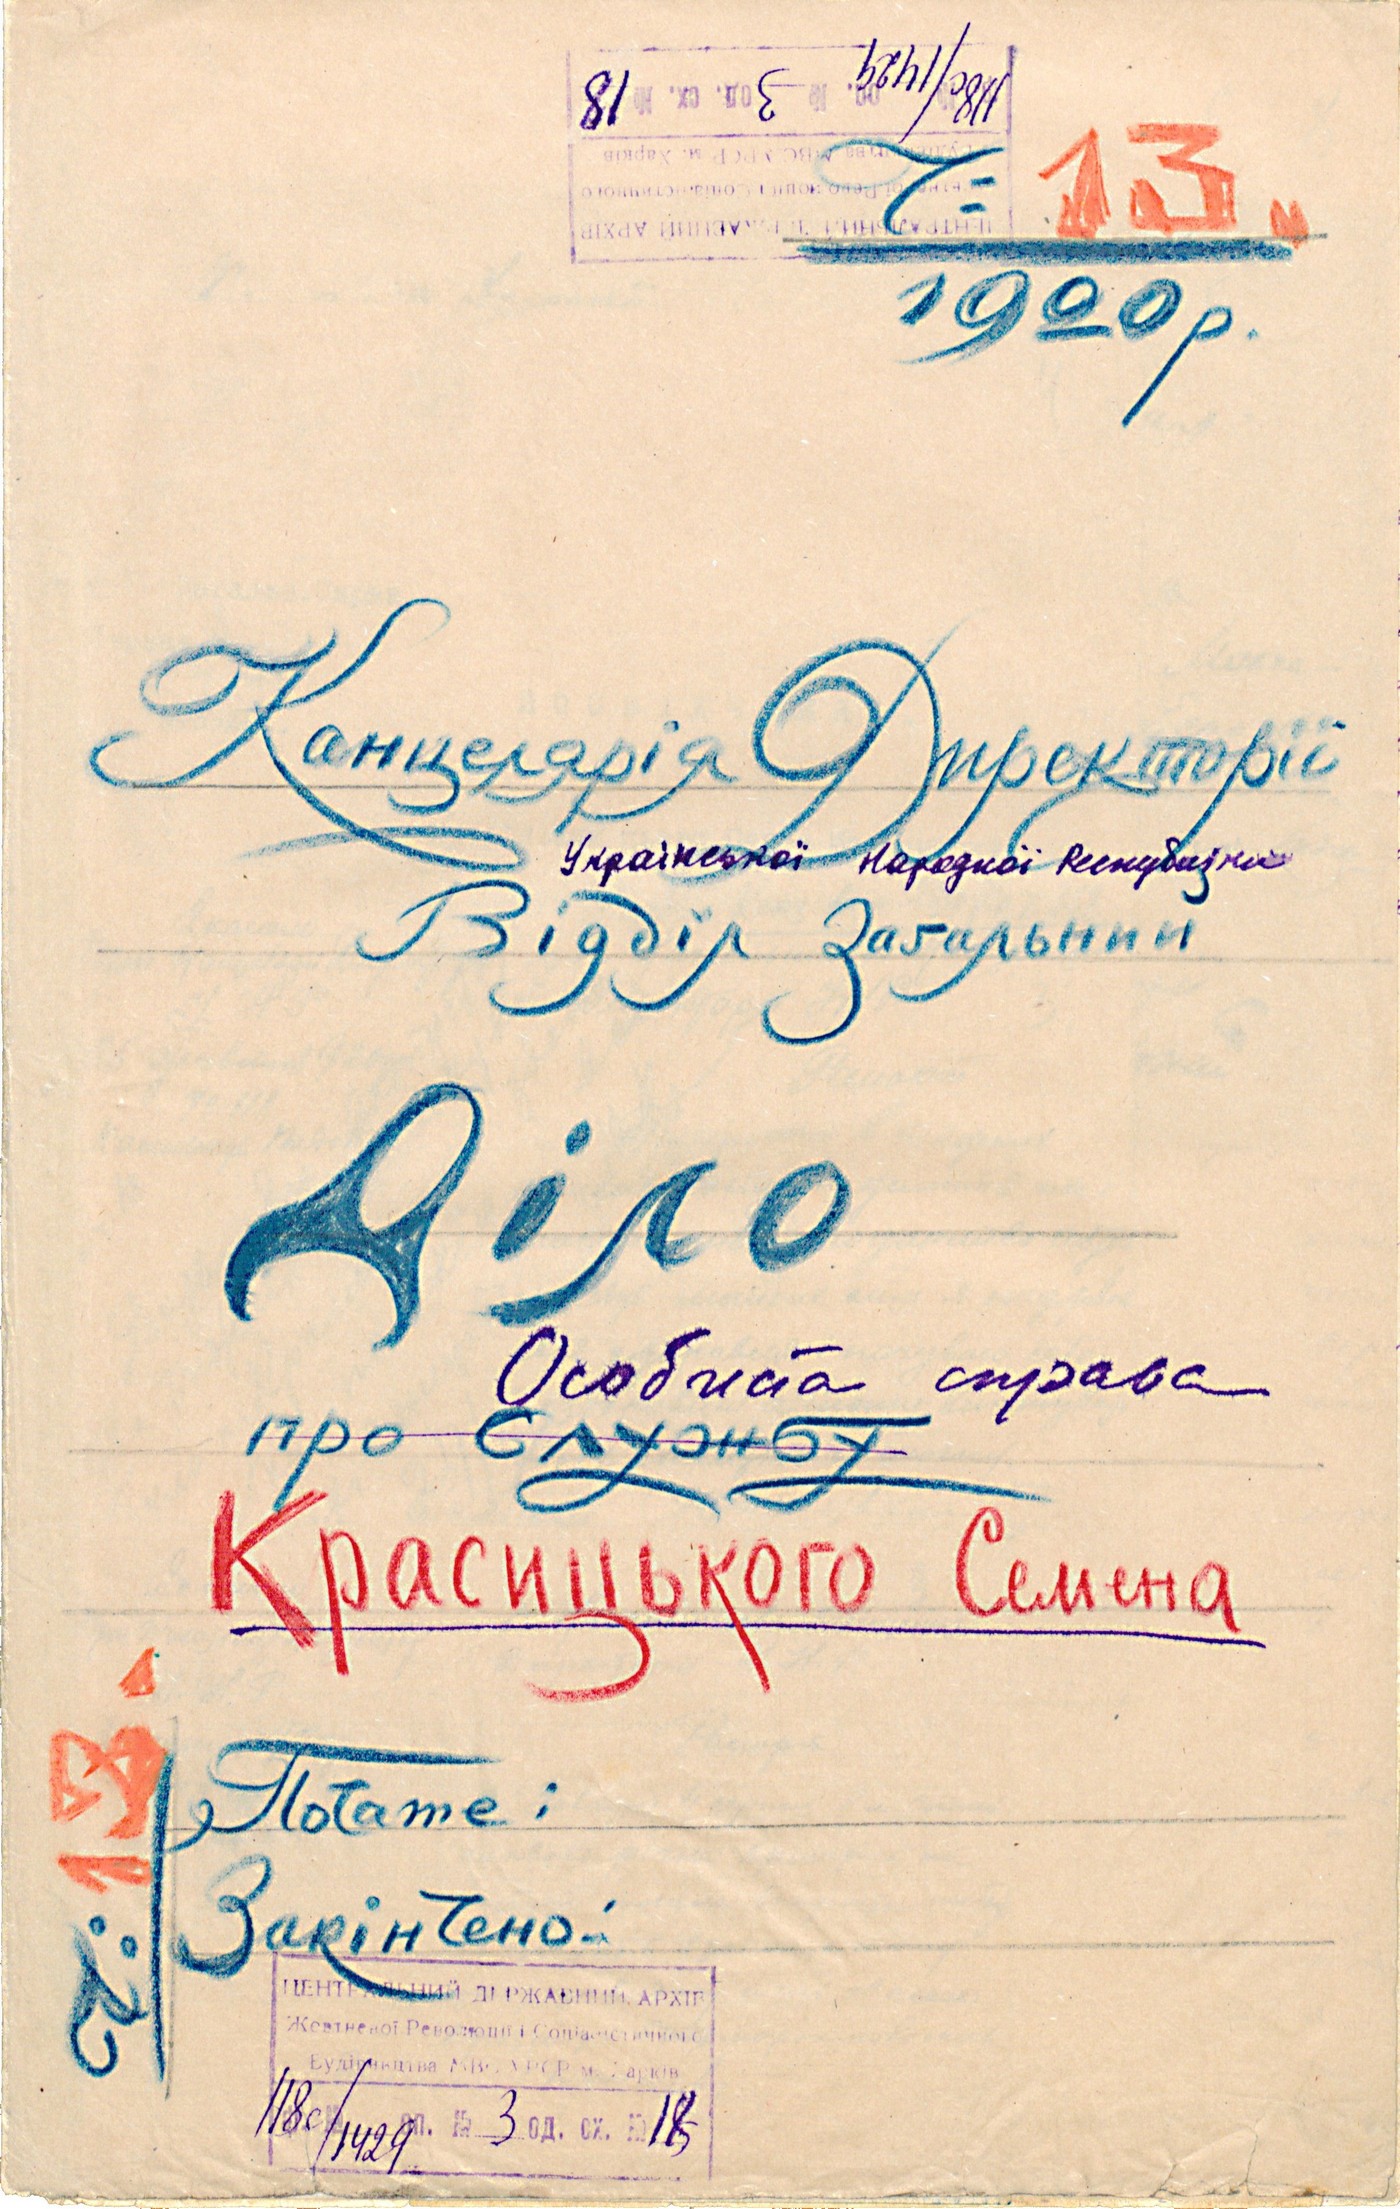 118с/1429 оп. № 3 од. сх. № 18
Будівництва МВС УРСР м. Харків
Жовтневої Революції і Соціалістичного
ЦЕНТРАЛЬНИЙ ДЕРЖАВНИЙ АРХІВ
Ч: 13.
1920 р.
Канцелярія Директорії
Української Народної Республіки
Відділ Загальний
Діло
Особиста справа
про службу
Красицького Семена
Ч: 13.
Почате:
Закінчено:
ЦЕНТРАЛЬНИЙ ДЕРЖАВНИЙ АРХІВ
Жовтневої Революції і Соціалістичного
Будівництва МВС УРСР м. Харків
118с/1429 оп. № 3 од. сх. № 18